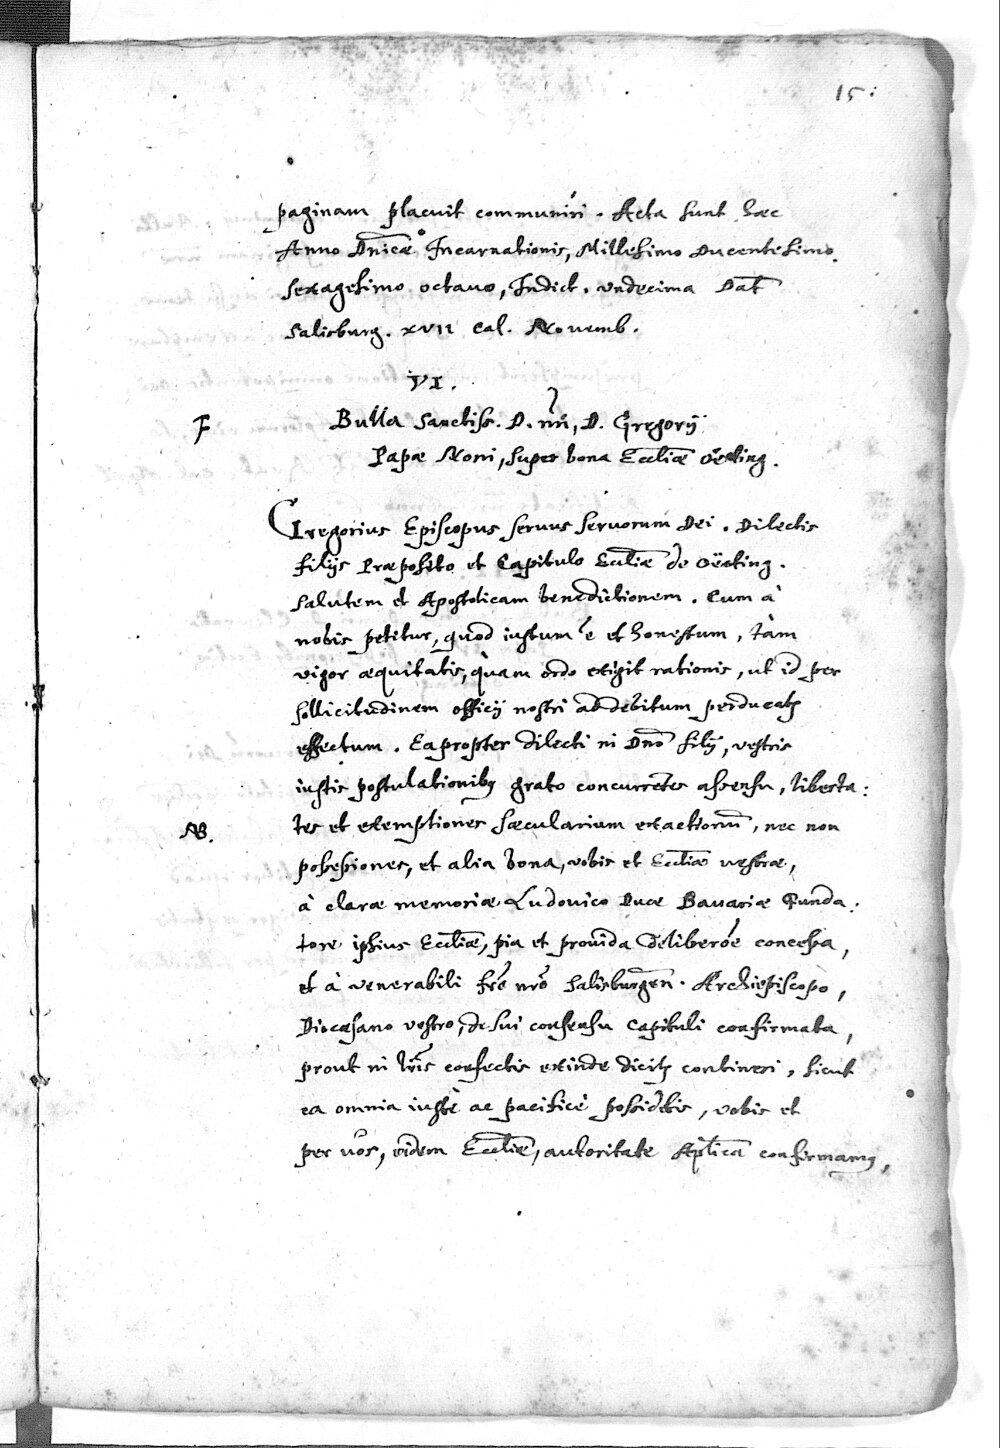 15.
paginam placuit communiri. Acta sunt haec
Anno Dnicae Incarnationis, Millesimo Ducentesimo
sexagesimo octavo, Indict. undecima Dat
Salisburg. XVII Cal. Novemb.
VI.
F Bulla Sanctiss. D. nri, D. Gregorij
Papae Noni, super bona Eccliae Oëting.
Gregorius Episcopus servus servorum Dei. Dilectis
filijs Praeposito et Capitulo Eccliae de Oëting.
salutem et Apostolicam benedictionem. Cum à
nobis petitur, quod iustum e et honestum, tàm
vigor aequitatis, quàm ordo exigit rationis, ut id per
sollicitudinem officij nostri ad debitum perducatr
effectum. Eapropter dilecti in Dno filij, vestris
iustis postulationibq grato concurretes assensu, liberta:
NB. tes et exemptiones saecularium exactionu, nec non
possessiones, et alia bona, vobis et Eccliae vestrae,
à clarae memoriae Ludovico Duce Bavariae Funda:
tore ipsius Eccliae, pia et provida deliberõe concessa,
et à venerabili fre nro Salisburgen. Archiepiscopo,
Dioecesano vestro, de sui consensu Capituli confirmata,
prout in lris confectis exinde dicitr contineri, sicut
ea omnia iustè ac pacificè possidetis, vobis et
per vos, eidem Eccliae, autoritate Aplica confirmamq,